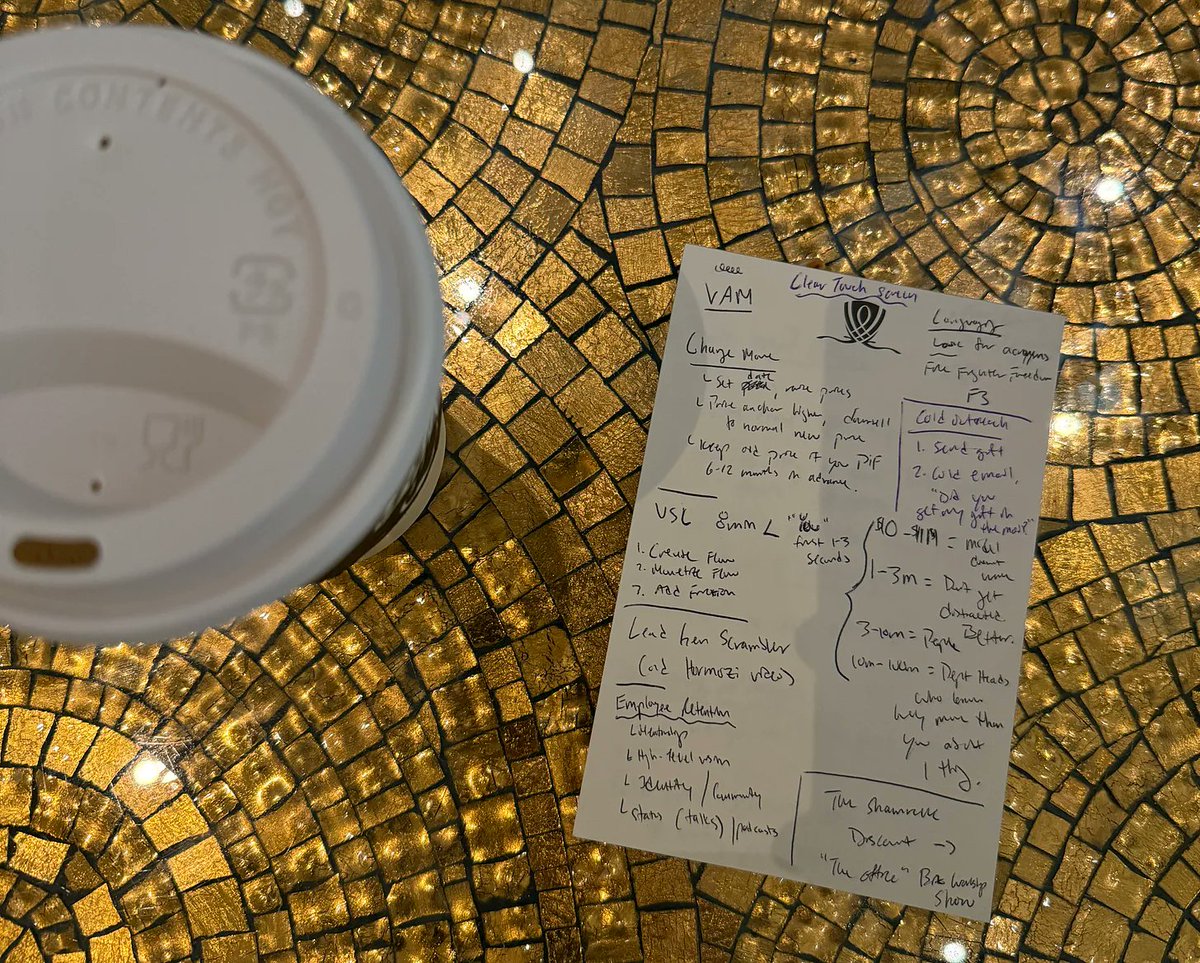 CONTENTS HOT
VAM
Clear Touch Screen
Charge More
Set date, raise prices
Price anchor higher, downsell
to normal new price
keep old price if you PIF
6-12 months in advance.
VSL 8mm
first 1-3
seconds
1. Create Flow
2. Monetize Flow
3. Add Friction
Lead Gen Scrambler
Hormozi videos
Employee Retention
High-level vision
Identity / Community
Status (talks) / podcasts
Language
for acronyms
Fire Fighter Freedom
F3
Cold outreach
1. Send gift
2. Cold email,
"Did you
get my gift in
the mail?"
$0 - $1M = model
1-3m = Don't get
distracted
3-10m = People Better.
10m-100m = Dept Heads
who know
way more than
you about
1 thing.
The Shamrock
Discount →
"The office" Show